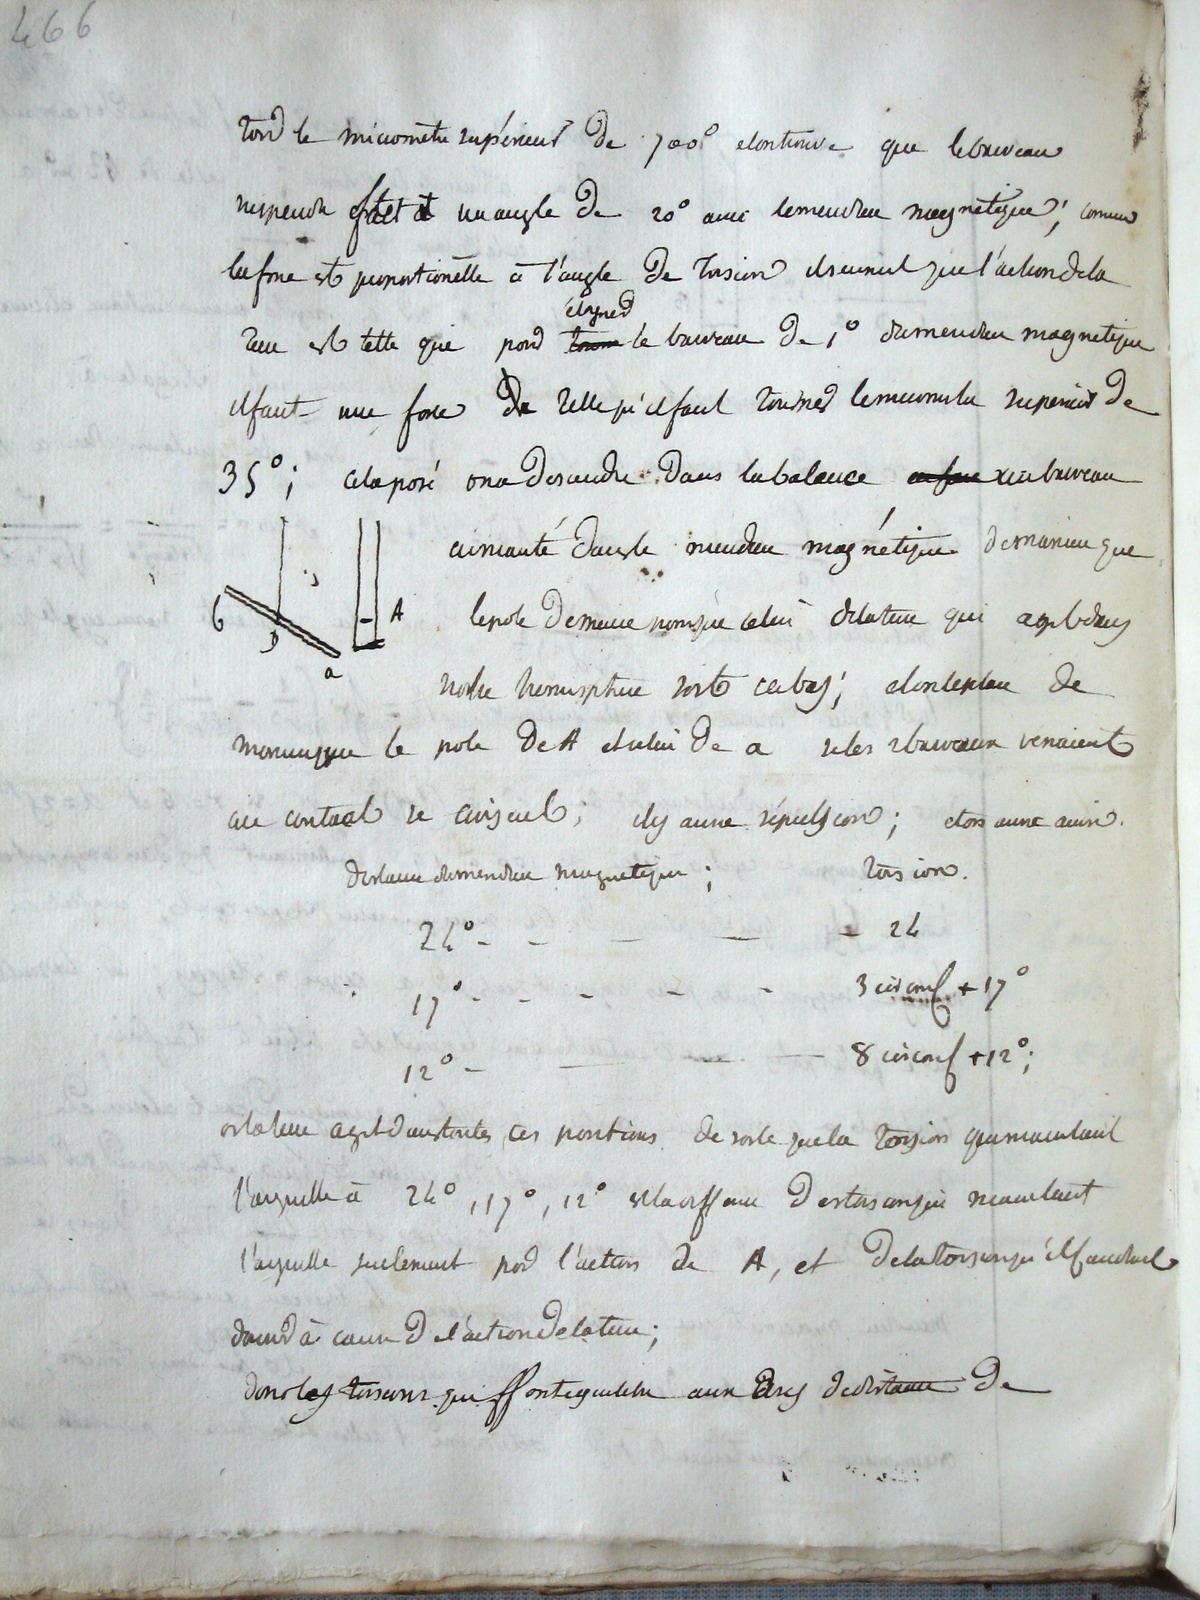 466
tord le micrometre supérieur de 700° et on trouve que le barreau
suspendu fait un angle de 20° avec le meridien magnétique; comme
la force est proportionelle à l'angle de torsion il s'ensuit que l'action de la
terre est telle que pour eloigner le barreau de 1° du meridien magnetique
il faut une force telle qu'il faut tourner le micrometre superieur de
35°; cela posé on a descendu dans la balance un barreau
aimanté dans le meridien magnétique de maniere que
le pole de meme nom que celui de la terre qui agit dans
G A
D
a
notre hemisphere soit en bas; et on le place de
maniere que le pole de A et celui de a si les 2 barreaux venaient
au contact se croisent; il y a une répulsion; et on a une ainsi.
distance du meridien magnetique; torsion.
24° - - - - - 24
17° - - - - - 3 circonf + 17°
12° - - - - 8 circonf + 12°;
or la terre agit dans toutes ces positions de sorte que la torsion qui maintient
l'aiguille à 24°, 17°, 12° est la difference des torsions qui maintient
l'aiguille seulement par l'action de A, et de la torsion qu'il faudrait
donner à cause de l'action de la terre;
donc les torsions qui font equilibre aux arcs de distance de